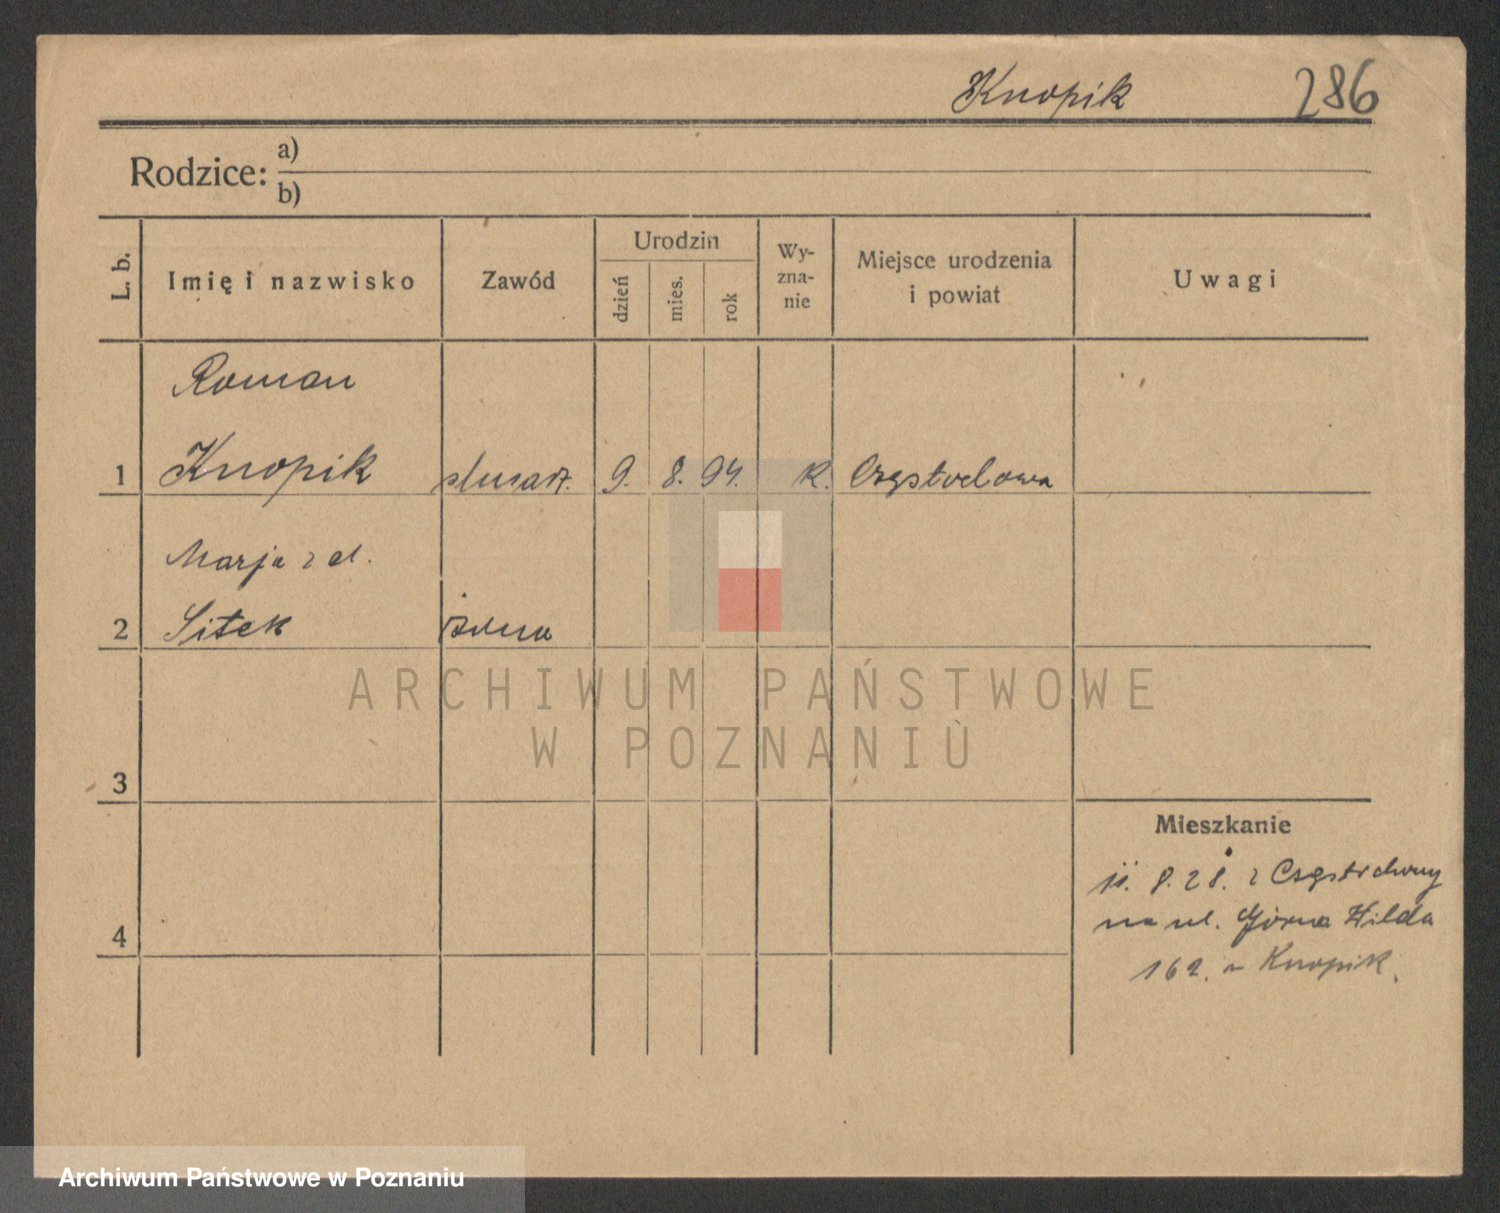 Knopik 286
Rodzice: a)
b)
L. b. Imię i nazwisko Zawód Urodzin dzień mies. rok Wy-
zna-
nie Miejsce urodzenia
i powiat Uwagi
Roman
1 Knopik slusarz. 9. 8. 94. R. Częstochowa
Marja z d.
2 Sitek żona
ARCHIWUM PAŃSTWOWE
W POZNANIU
3
Mieszkanie
8.28. z Częstochowy
4 na ul. Górna Wilda
162. Knopik.
Archiwum Państwowe w Poznaniu